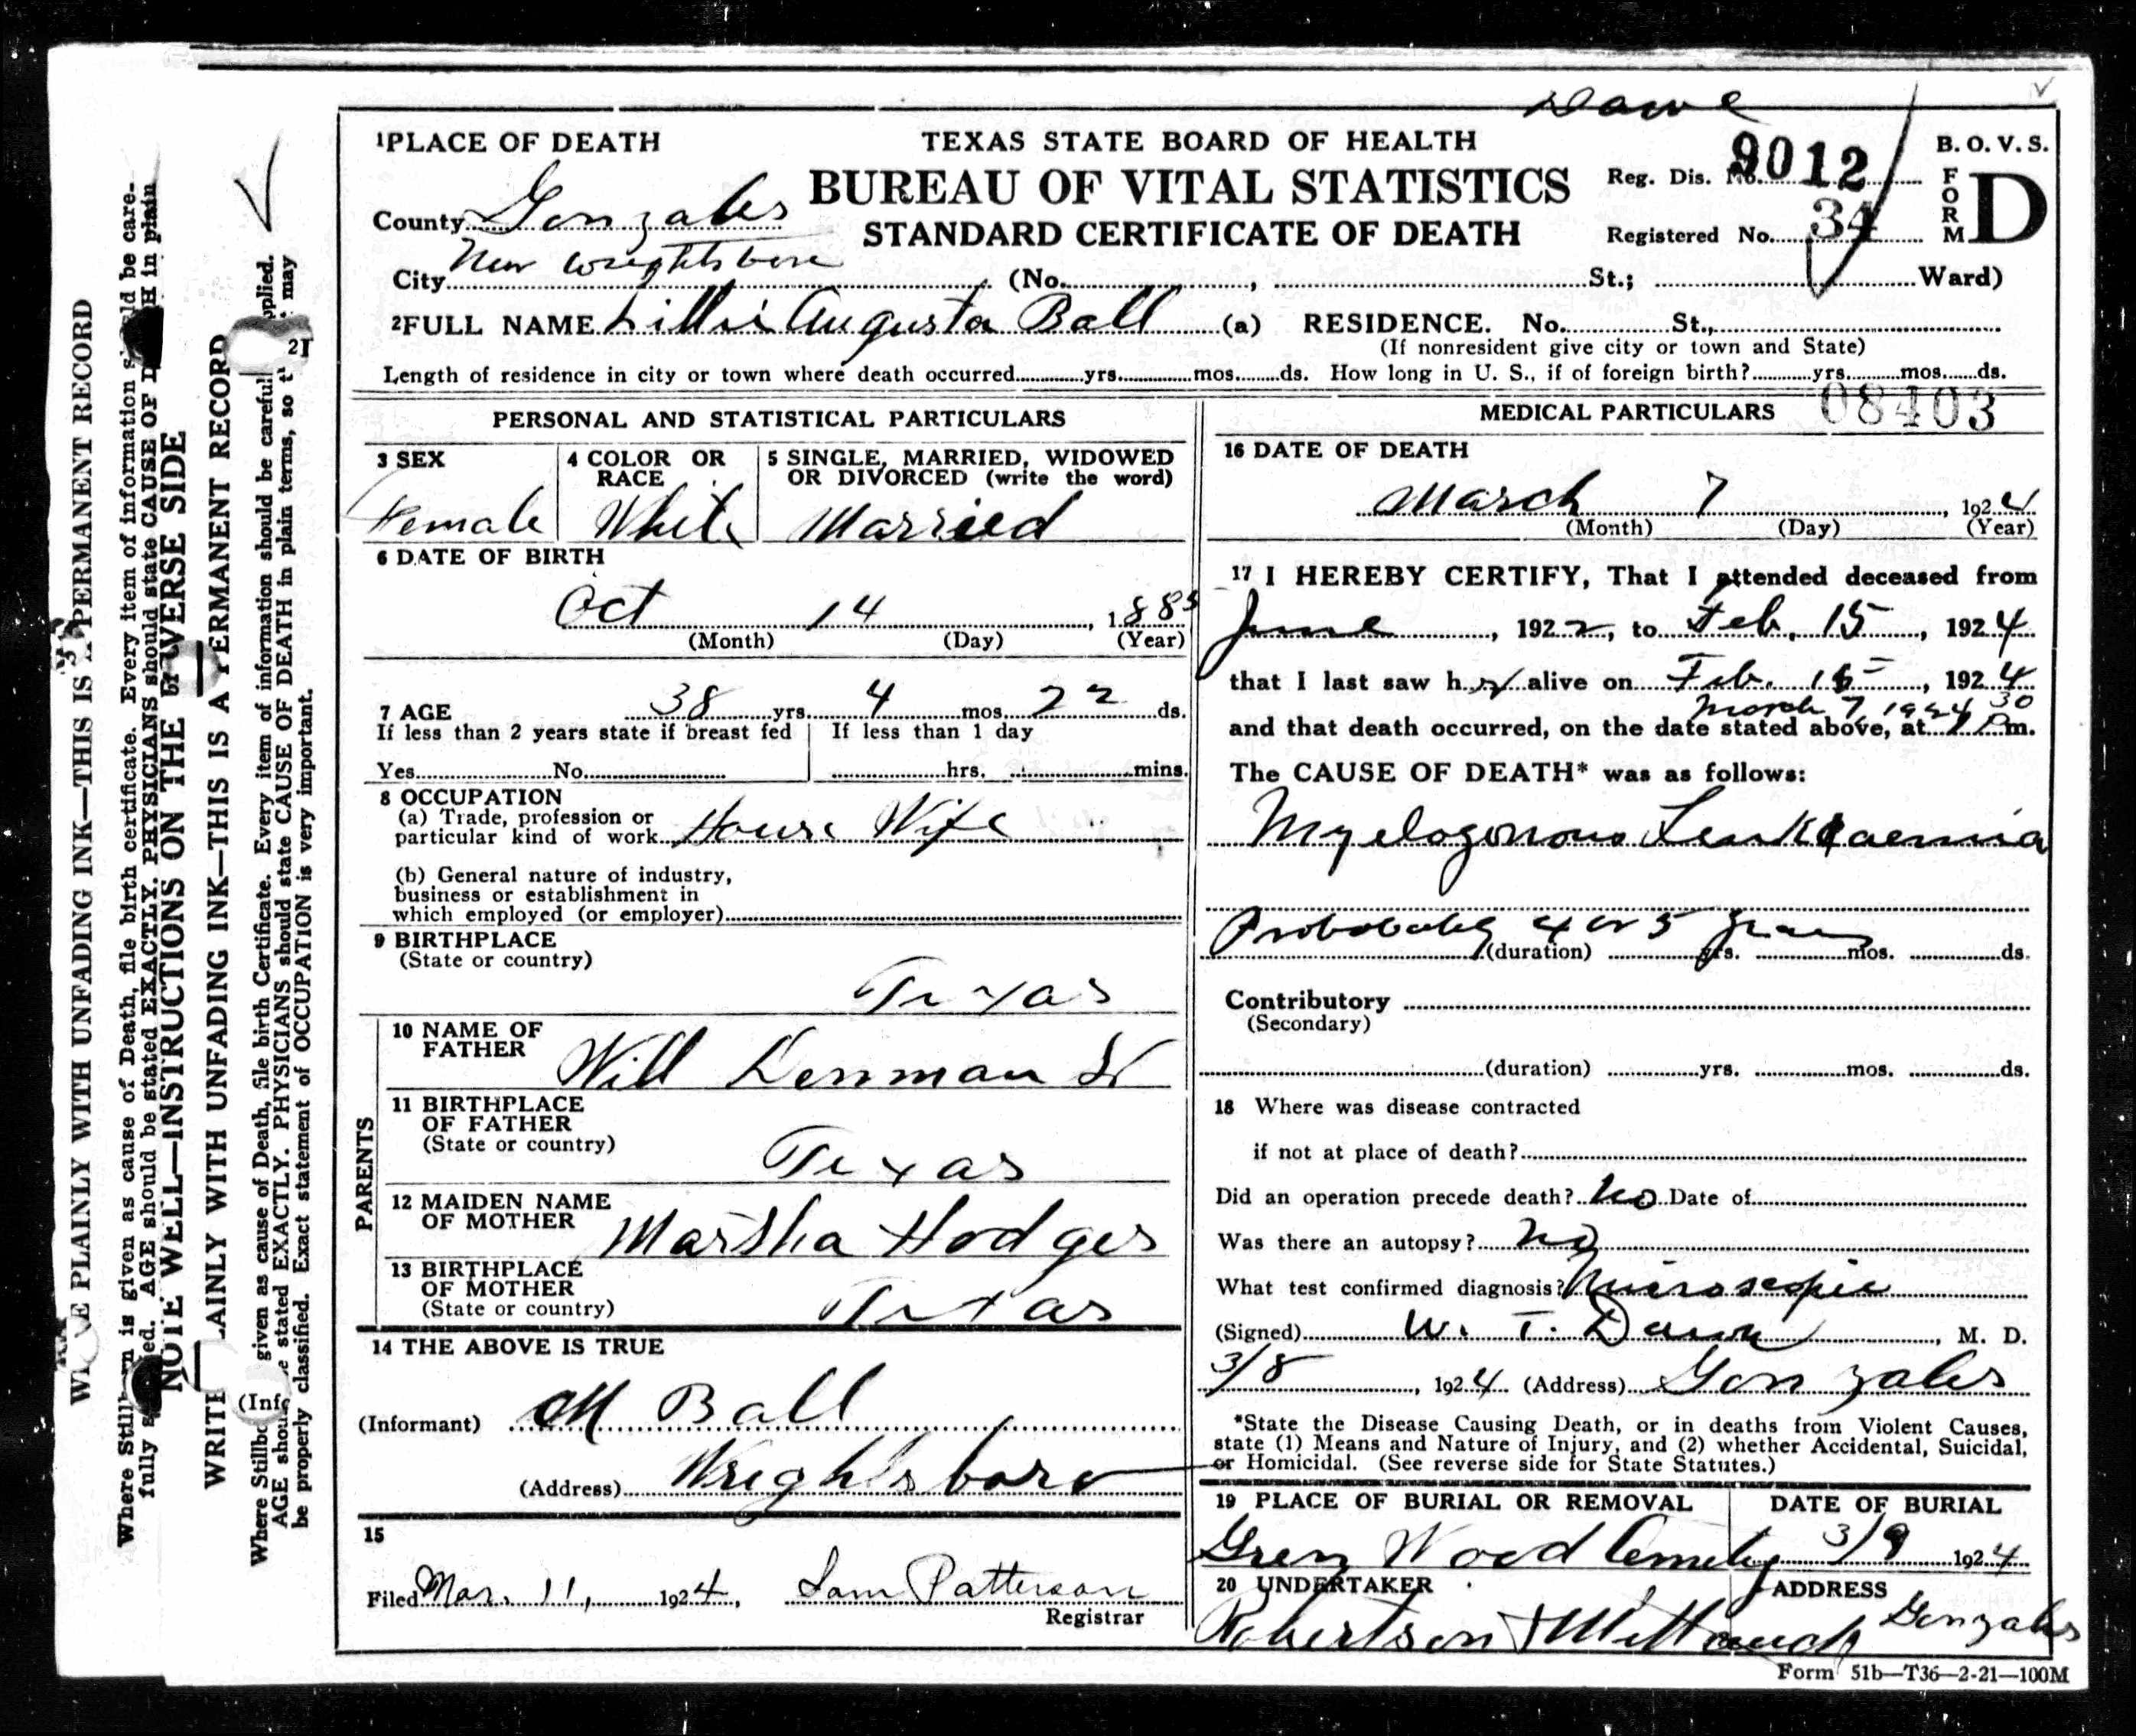 Dawe
1PLACE OF DEATH
TEXAS STATE BOARD OF HEALTH
BUREAU OF VITAL STATISTICS
STANDARD CERTIFICATE OF DEATH
Reg. Dis. No. 9012
Registered No. 34
B. O. V. S.
FORM D
County Gonzales
City Near Wrightsboro (No. , St.; Ward)
2FULL NAME Lillie Augusta Ball (a) RESIDENCE. No. St.,
(If nonresident give city or town and State)
Length of residence in city or town where death occurred yrs. mos. ds. How long in U. S., if of foreign birth? yrs. mos. ds.
PERSONAL AND STATISTICAL PARTICULARS
3 SEX
Female
4 COLOR OR RACE
White
5 SINGLE, MARRIED, WIDOWED
OR DIVORCED (write the word)
Married
6 DATE OF BIRTH
Oct 14, 1885
(Month) (Day) (Year)
7 AGE 38 yrs. 4 mos. 22 ds.
If less than 2 years state if breast fed If less than 1 day
Yes No hrs. mins.
8 OCCUPATION
(a) Trade, profession or
particular kind of work House Wife
(b) General nature of industry,
business or establishment in
which employed (or employer)
9 BIRTHPLACE
(State or country)
Texas
PARENTS
10 NAME OF
FATHER Will Denman Sr
11 BIRTHPLACE
OF FATHER
(State or country) Texas
12 MAIDEN NAME
OF MOTHER Marsha Hodges
13 BIRTHPLACE
OF MOTHER
(State or country) Texas
14 THE ABOVE IS TRUE
(Informant) M Ball
(Address) Wrightsboro
15
Filed Mar. 11, 1924, Sam Patterson
Registrar
MEDICAL PARTICULARS 08403
16 DATE OF DEATH
March 7, 1924
(Month) (Day) (Year)
17 I HEREBY CERTIFY, That I attended deceased from
June, 1922, to Feb. 15, 1924
that I last saw her alive on Feb. 15, 1924
March 7 1924 30
and that death occurred, on the date stated above, at P.m.
The CAUSE OF DEATH* was as follows:
Myelogonous Leukaemia
Probobably 4 or 5 years
(duration) yrs. mos. ds.
Contributory
(Secondary)
(duration) yrs. mos. ds.
18 Where was disease contracted
if not at place of death?
Did an operation precede death? No Date of
Was there an autopsy? No
What test confirmed diagnosis? Microscopic
(Signed) W. T. Dawe, M. D.
3/8, 1924 (Address) Gonzales
*State the Disease Causing Death, or in deaths from Violent Causes,
state (1) Means and Nature of Injury, and (2) whether Accidental, Suicidal,
or Homicidal. (See reverse side for State Statutes.)
19 PLACE OF BURIAL OR REMOVAL DATE OF BURIAL
Green Wood Cemetery 3/9 1924
20 UNDERTAKER ADDRESS
Robertson & Gonzales
Form 51b—T36—2-21—100M
PLAINLY WITH UNFADING INK—THIS IS A PERMANENT RECORD
Where is given as cause of Death, file birth certificate. Every item of information be care-
fully AGE should be stated EXACTLY. PHYSICIANS should state CAUSE OF in plain
NOTE WELL—INSTRUCTIONS ON THE SIDE
WRITE WITH UNFADING INK—THIS IS A PERMANENT RECORD
(Inf 21
Where given as cause of Death, file birth Certificate. Every item of information should be
AGE stated EXACTLY. PHYSICIANS should state CAUSE OF DEATH in plain terms, so may
be properly classified. Exact statement of OCCUPATION is very important.